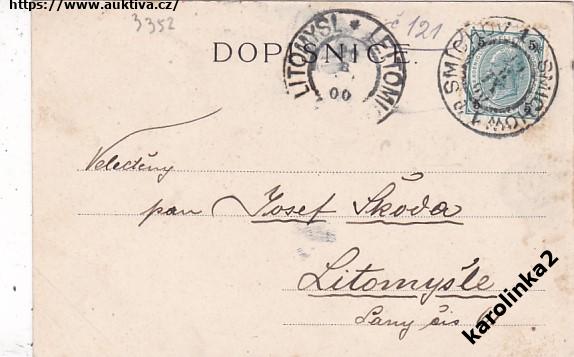 https://www.auktiva.cz/
3352
č 121
DOPISNICE.
LITOMYŠL * LEITOMI
00
SMICHOW 1 * SMÍCHOV 1
5 5
Velectěný
pan Josef Škoda
Litomyšle
Lány čís
karolinka2